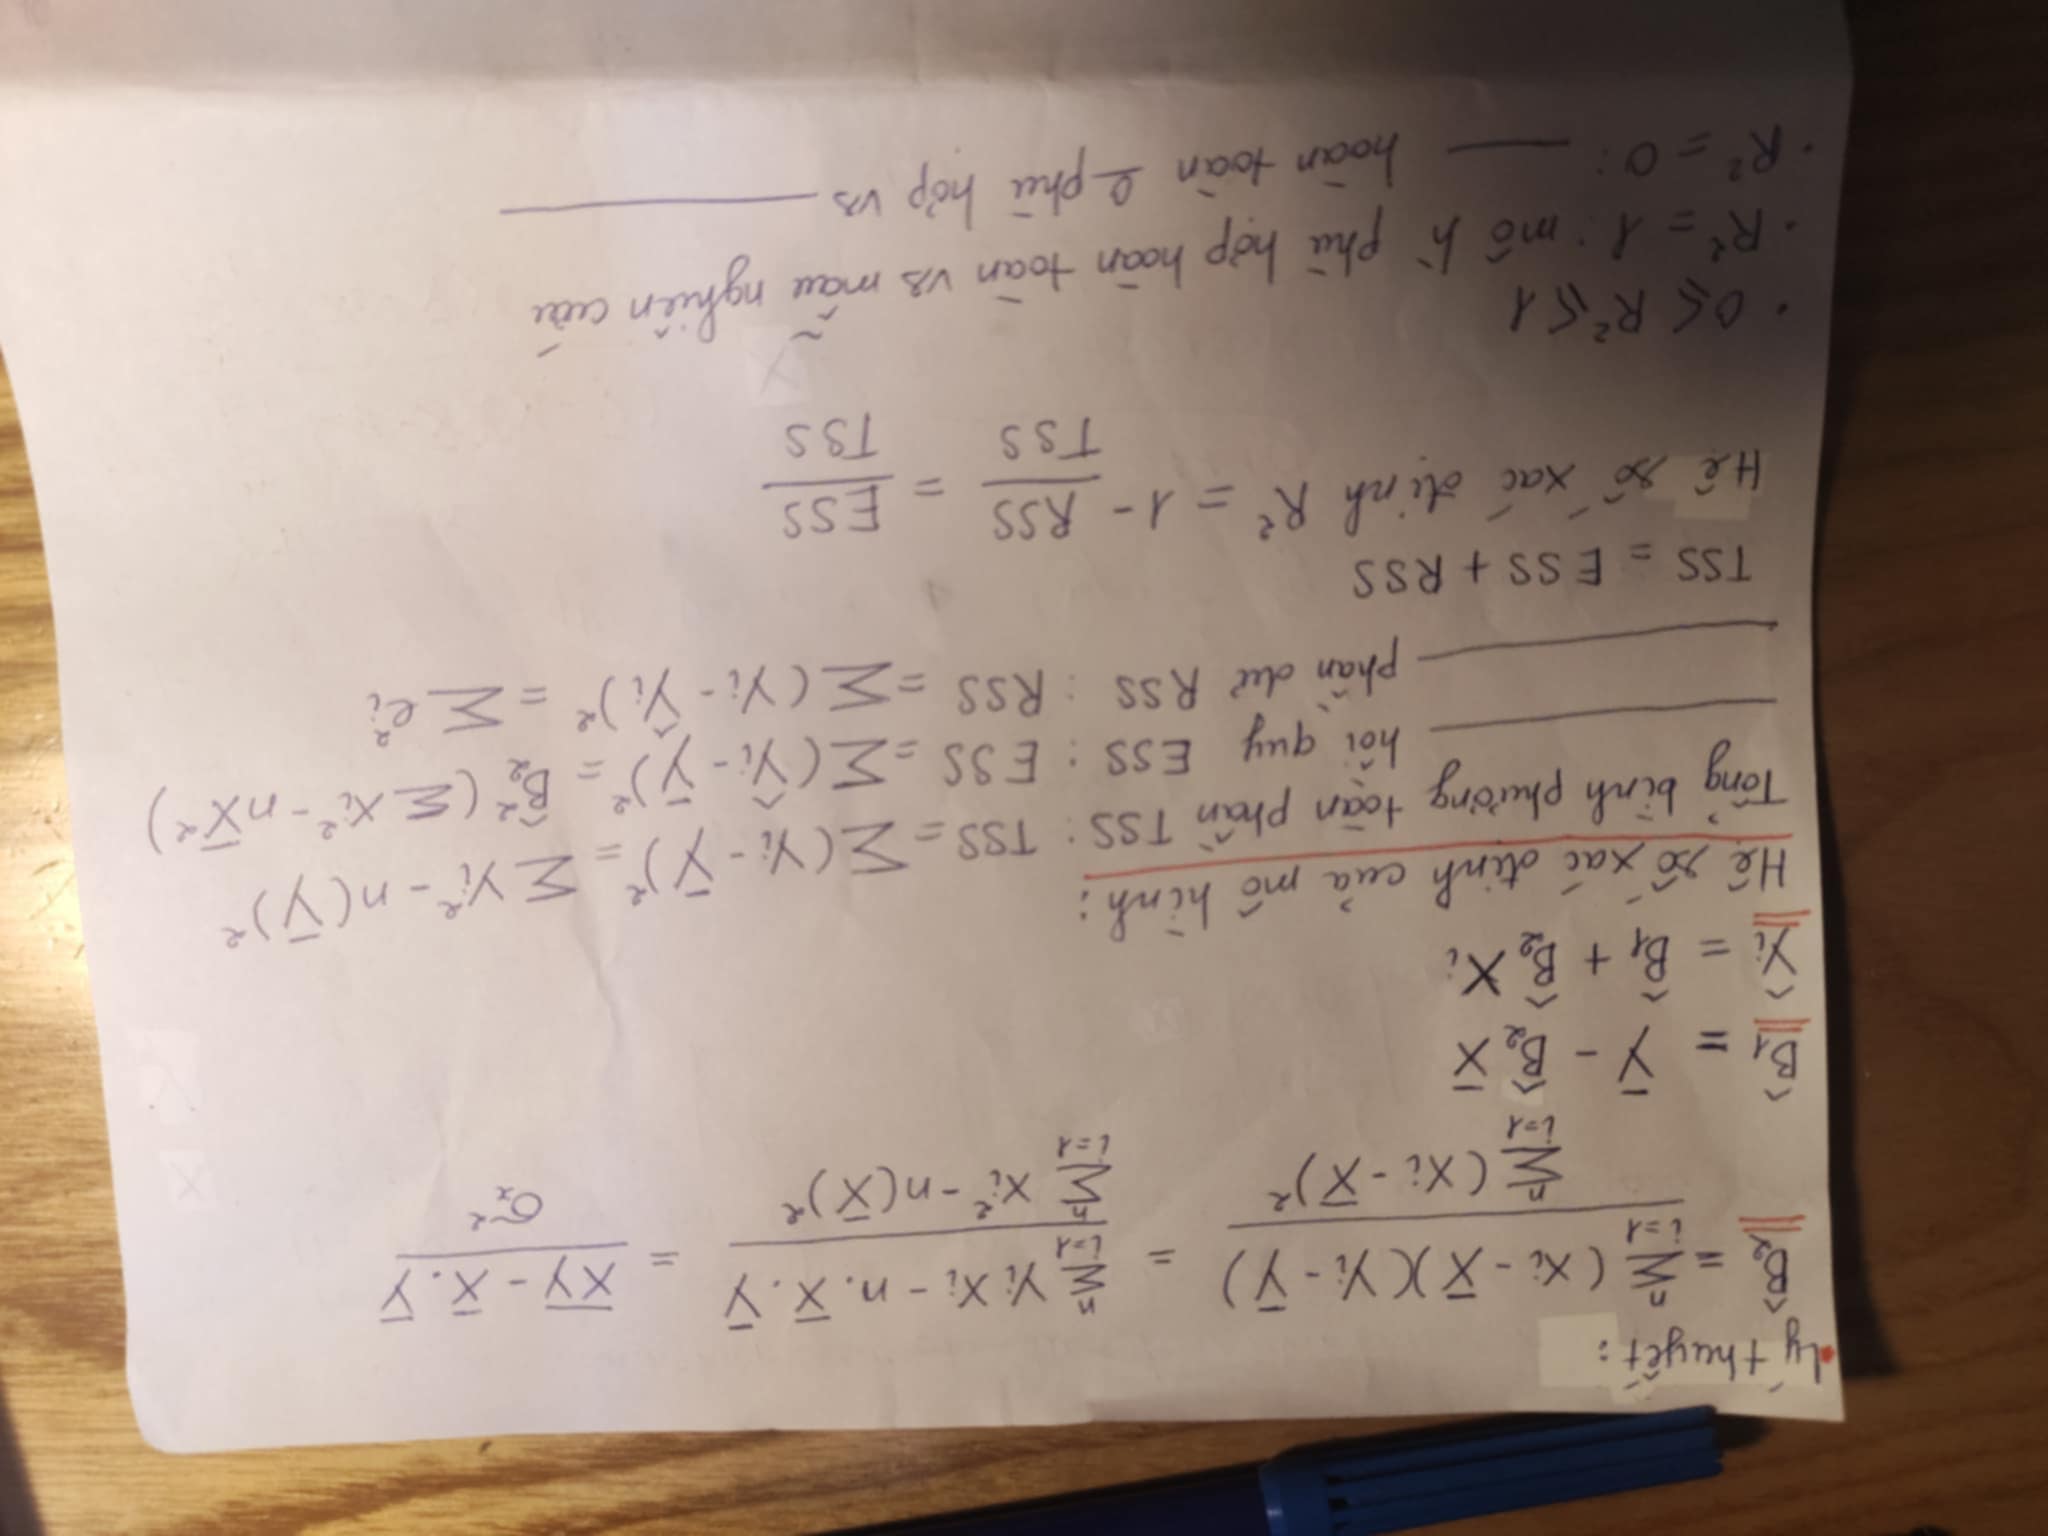 Lý thuyết:
B̂₂ = ∑ⁿᵢ₌₁ (Xi - X̄)(Yi - Ȳ) / ∑ⁿᵢ₌₁ (Xi - X̄)² = ∑ⁿᵢ₌₁ Yi Xi - n. X̄ . Ȳ / ∑ⁿᵢ₌₁ Xi² - n(X̄)² = X̅Y̅ - X̄ . Ȳ / σₓ²
B̂₁ = Ȳ - B̂₂ X̄
Ŷi = B̂₁ + B̂₂ Xi
Hệ số xác định của mô hình:
Tổng bình phương toàn phần TSS : TSS = ∑(Yi - Ȳ)² = ∑ Yi² - n(Ȳ)²
_____ hồi quy ESS : ESS = ∑(Ŷi - Ȳ)² = B̂₂² (∑ Xi² - nX̄²)
_____ phần dư RSS : RSS = ∑(Yi - Ŷi)² = ∑ ei²
TSS = ESS + RSS
Hệ số xác định R² = 1 - RSS / TSS = ESS / TSS
· 0 ⩽ R² ⩽ 1
· R² = 1 : mô h̀ phù hợp hoàn toàn vs mẫu nghiên cứu
· R² = 0 : ___ hoàn toàn o̲ phù hợp vs _____